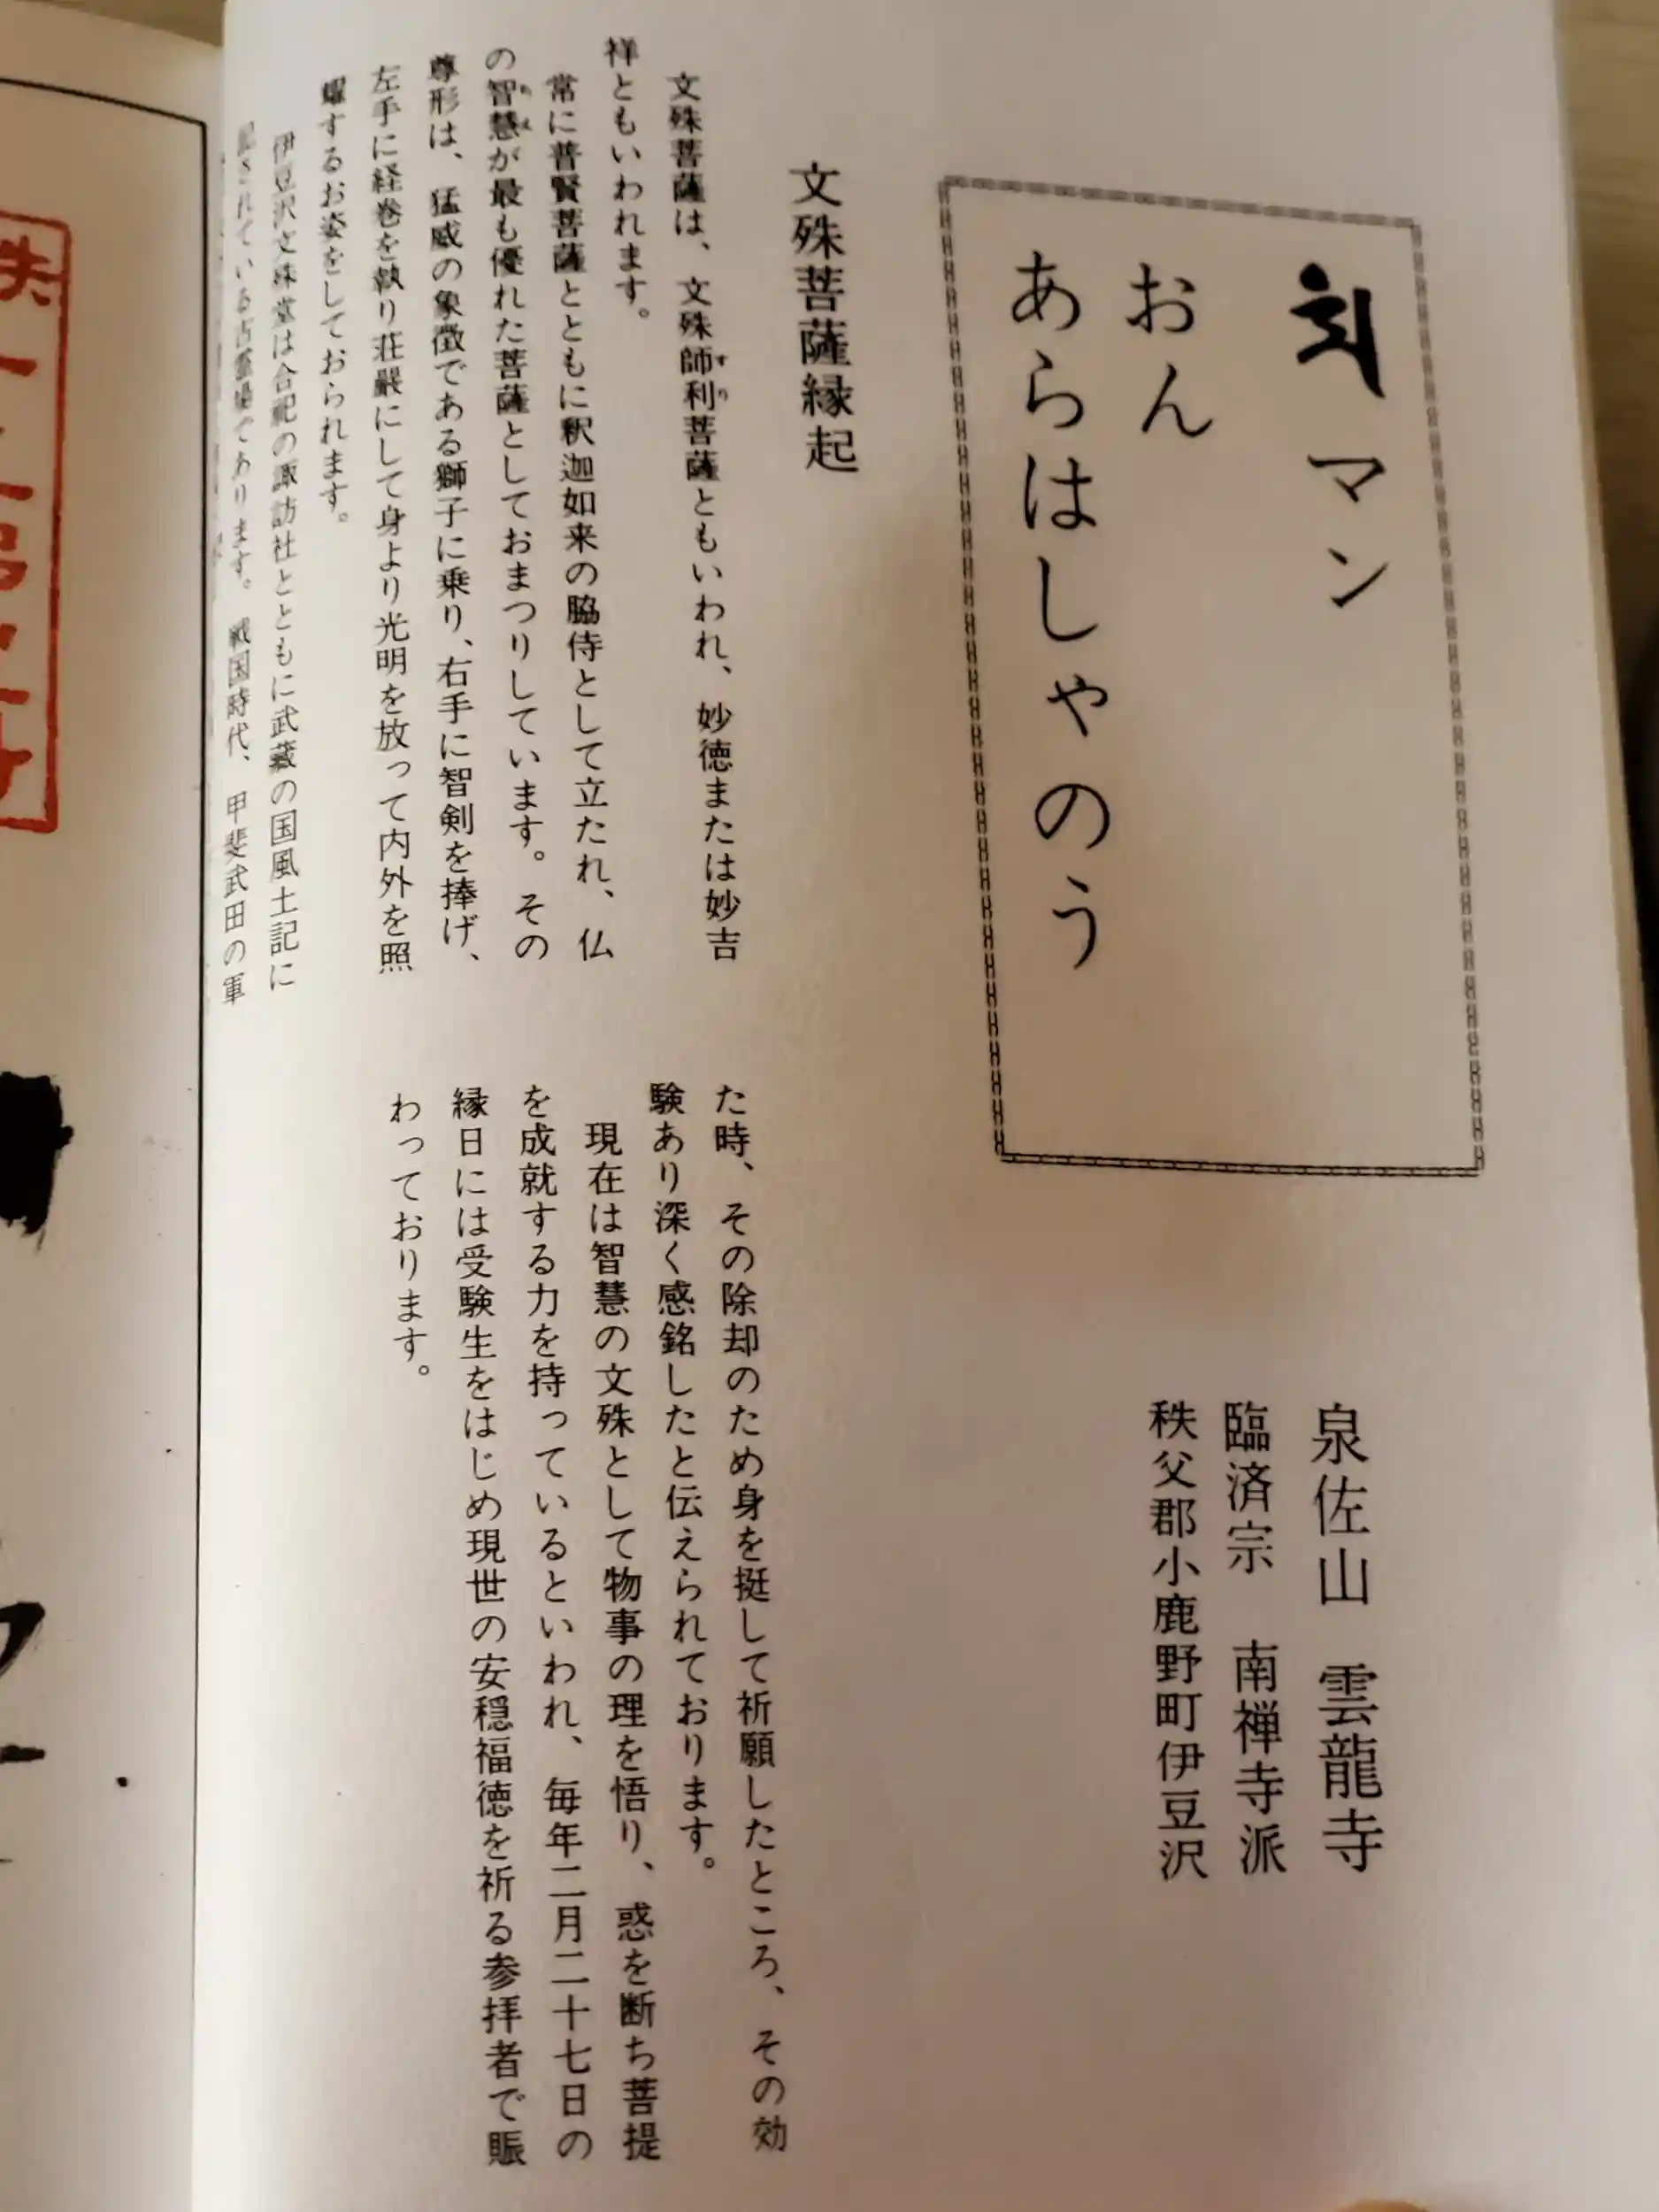 マン
おん
あらはしゃのう
泉佐山　雲龍寺
臨済宗　南禅寺派
秩父郡小鹿野町伊豆沢
文殊菩薩縁起
文殊菩薩は、文殊師利菩薩ともいわれ、妙徳または妙吉
祥ともいわれます。
常に普賢菩薩とともに釈迦如来の脇侍として立たれ、仏
の智慧が最も優れた菩薩としておまつりしています。その
尊形は、猛威の象徴である獅子に乗り、右手に智剣を捧げ、
左手に経巻を執り荘厳にして身より光明を放って内外を照
耀するお姿をしておられます。
伊豆沢文殊堂は合祀の諏訪社とともに武蔵の国風土記に
記されている古霊場であります。戦国時代、甲斐武田の軍
た時、その除却のため身を挺して祈願したところ、その効
験あり深く感銘したと伝えられております。
現在は智慧の文殊として物事の理を悟り、惑を断ち菩提
を成就する力を持っているといわれ、毎年二月二十七日の
縁日には受験生をはじめ現世の安穏福徳を祈る参拝者で賑
わっております。